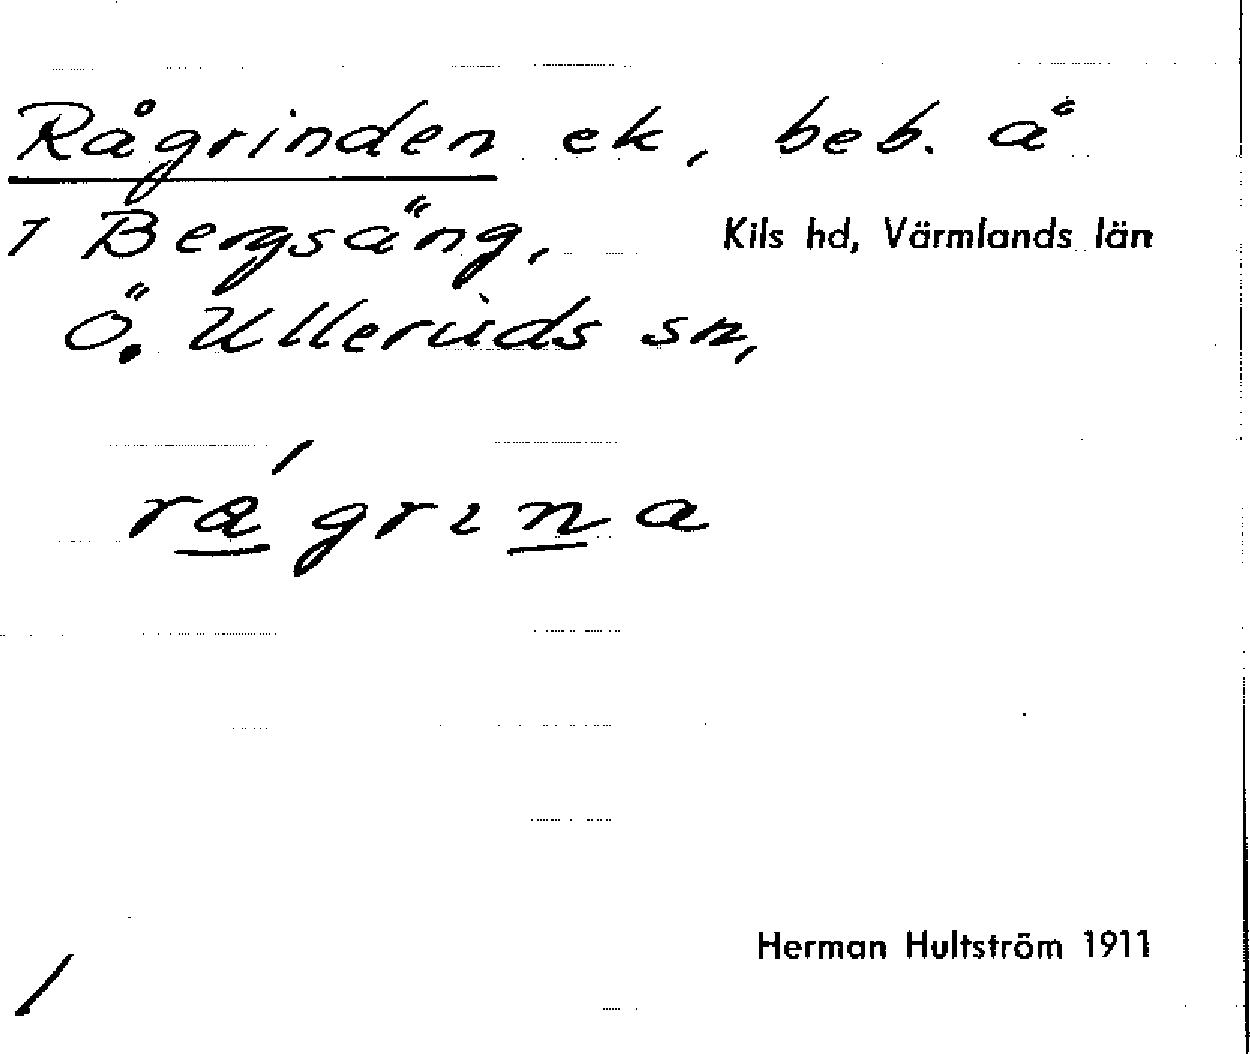 Rågrinden ek, beb. å
1 Bergsäng, Kils hd, Värmlands län
Ö. Ulleruds sn,
rá̲grɩn̲a
Herman Hultström 1911
/